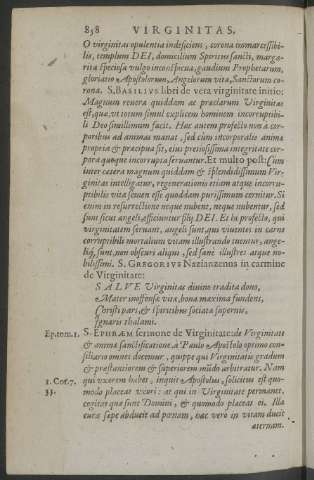 858 VIRGINITAS.
O virginitas opulentia indeficiens, corona immarcessibi-
lis, templum DEI, domicilium Spiritus sancti, marga-
rita speciosa vulgo inconspecta, gaudium Prophetarum,
gloriatio Apostolorum, Angelorum vita, Sanctorum co-
rona. S. BASILIVS libri de vera virginitate initio:
Magnum reuera quiddam ac praeclarum Virginitas
est, quae, ut totum simul explicem hominem incorruptibi-
li Deo simillimum facit. Hac autem profecto non à cor-
poribus ad animas manat, sed cùm incorporatae animae
propria & praecipua sit, eius pretiosissima integritate cor-
pora quoque incorrupta seruantur. Et multo post: Cùm
inter caetera magnum quiddam & splendidissimum Vir-
ginitas intelligatur, regenerationis etiam atque incorru-
ptibilis vitae semen esse quoddam purissimum cernitur. Si
enim in resurrectione neque nubent, neque nubentur, sed
sunt sicut angeli, efficiuntur filij DEI. Et hi profectò, qui
virginitatem seruant, angeli sunt, qui viuentes in carne
corruptibili mortalium vitam illustrando tuentur, ange-
liq́; sunt, non obscuri aliqui, sed sanè illustres atque no-
bilissimi. S. GREGORIVS Nazianzenus in carmine
de Virginitate:
SALVE Virginitas diuino tradita dono,
Mater inoffensae vitae, bona maxima fundens,
Christi pars, & spiritibus sociata supernis,
Ignaris thalami.
Ep. tom. 1. S. EPHRAEM sermone de Virginitate: de Virginitate
& animae sanctificatione à Paulo Apostolo optimo con-
siliario omnes docemur, quippe qui Virginitatis gradum
& praestantiorem & superiorem multò arbitratur. Nam
1. Cor. 7. qui vxorem habet, inquit Apostolus, solicitus est quo-
33. modo placeat vxori: at qui in Virginitate permanet,
cogitat quae sunt Domini, & quomodo placeat ei. Illa
curae saepe abducit ad poenam, haec verò in vitam ducit
aeternam.